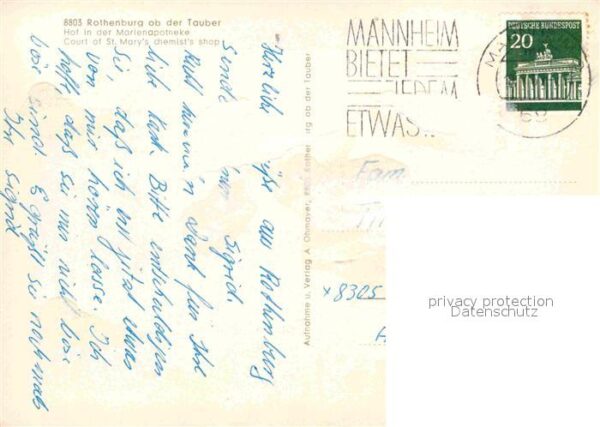 8803 Rothenburg ob der Tauber
Hof in der Marienapotheke
Court of St. Mary's chemist's shop
MANNHEIM
BIETET
JEDEM
ETWAS..
DEUTSCHE BUNDESPOST
20
MA
69
Herzlich aus Rothenburg
sendet Sigrid.
Dank für Ihre
liebe Karte. Bitte entschuldigen
Sie, daß ich erst jetzt etwas
von mir hören lasse. Ich
hoffe, daß Sie mir nicht böse
sind. Es grüßt Sie nochmals
Ihre Sigrid
Aufnahme u. Verlag A. Ohmayer, 8803 Rothenburg ob der Tauber
Fam
x8305
privacy protection
Datenschutz